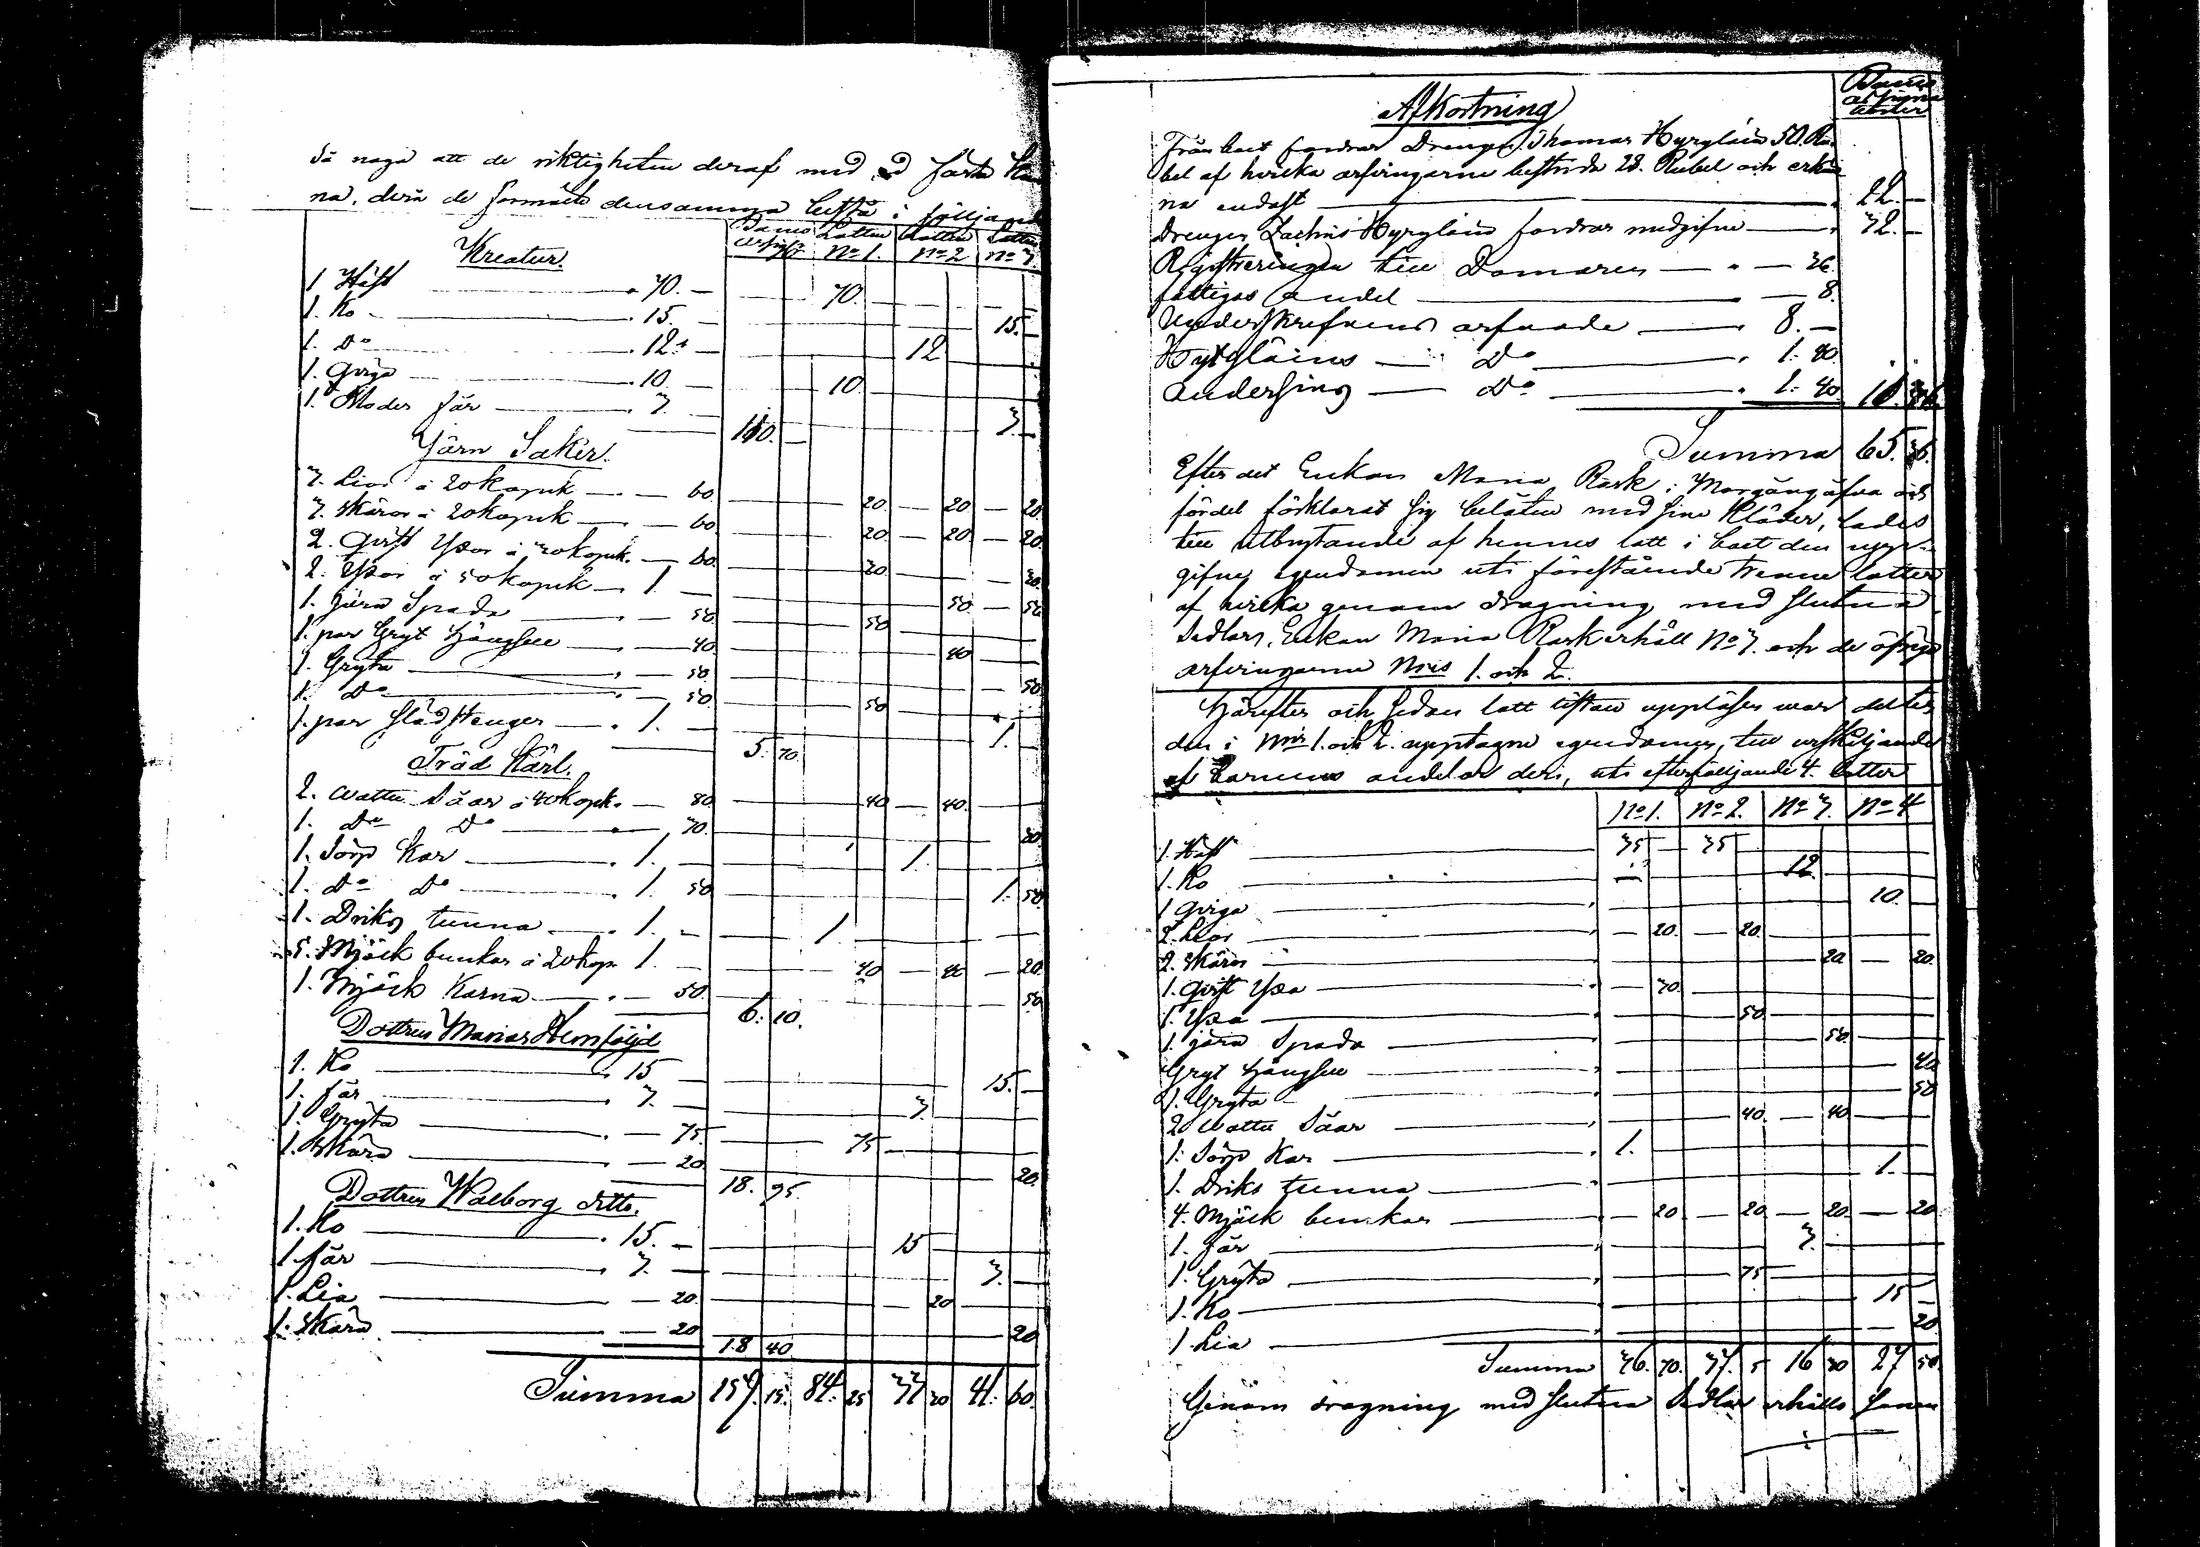 så noga att de riktigheten deraf med ed fästa kun
na, derå de förmälte densamma bestå i följande
Kreatur. Lotten Lotten Lotten
No 1. No 2 No 3.
1 Häst 70. — 70.
1. Ko 15. — 15. —
1. Do 12. — 12
1. Qviga 10. — 10.
1. Moder får 3. — 3. —
110. —
Järn Saker.
3. Liar à 20 kopek — 60. 20. — 20 — 20
3. Skäror à 20 kopek — 60 20. — 20 — 20
2. Qvist Yxor à 30 kopek. — 60. 30 30
2. Yxor à 50 kopek 1. — 50. — 50
1. Järn Spada — 50. 50
1. par Gryt Hängslen — 40. 40
1. Gryta — 50. 50
1. Do — 50 50
1. par Städ Stenger 1. 1.
5. 70.
Träd Kärl.
2. Watten Såar à 40 kopk. — 80 40 — 40.
1. Do Do — 30. 30
1. Sörp Kar 1. — 1.
1. Do Do 1. 50 1. 50
1. Driks tunna 1. — 1.
5. Mjölk bunkar à 20 kop. 1. — 40 — 40 — 20
1. Mjölk Kärna — 50. 50
6. 10.
Dottren Marias Hemföljd
1. Ko 15 — 15. —
1. får 3. — 3.
1. Gryta — 75. 75
1. Skära — 20 20
18. 95.
Dottren Walborg ditto.
1. Ko 15. — 15
1. får 3. — 3. —
1. Lia — 20. 20
1. Skära — 20 20
18 40
Summa 159. 15. 84. 25 33 30 41. 60.
Afkortning
Från boet fordrar Drengen Thomas Hyryläin 50. Ru
bel af hvilka arfvingarne bestrida 28. Rubel och erkän
na endast 22. —
Drengen Zachris Hyryläin fordrar medgifne 32. —
Registreringen till Domaren — 36.
fattigas andel — 8.
Underskrefvens arfvode 8. —
Hyryläins — Do 1. 40.
Anderssins — Do 1. 40
Summa 65.
Efter det Enkan Maria Rask i Morgongåfva och
fördel förklarat sig belåten med sine Kläder, lades
till utbrytande af hennes lott i boet den upp-
gifne egendomen uti förestående trenne lotter
af hvilka genom dragning med slutna
Sedlar, Enkan Maria Rask erhåll No 3. och de öfrige
arfvingarne Nris 1. och 2.
Härefter och sedan lott listan uppläsen war deltes
den i Nris 1. och 2. upptagne egendomen, till urskiljande
af barnens andelar deri, uti efterföljande 4. lotter
No 1. No 2. No 3. No 4
1. Häst 35 — 35
1. Ko 12
1 Qviga 10.
2. Liar — 20. — 20.
2. Skäror 20 — 20.
1. Qvist Yxa — 30.
1. Yxa 50
1. järn Spada 50.
Gryt Hängslen 40
1. Gryta 50
2 Watten Såar 40. — 40
1. Sörp Kar 1.
1. Driks tunna 1.
4. Mjölk bunkar — 20 — 20 — 20. — 20
1. får 3.
1. Gryta 75
1. Ko 15 —
1 Lia 20
Summa 36. 70. 37. 5 16 30 27 50
Genom dragning med slutna Sedlar erhållo